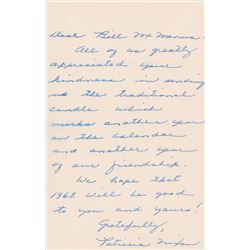 Dear Bill McManus -
All of us greatly
appreciated your
kindness in sending
us the traditional
candle which
marks another year
on the calendar
and another year
of our friendship.
We hope that
1968 will be good
to you and yours!
Gratefully,
Patricia Nixon